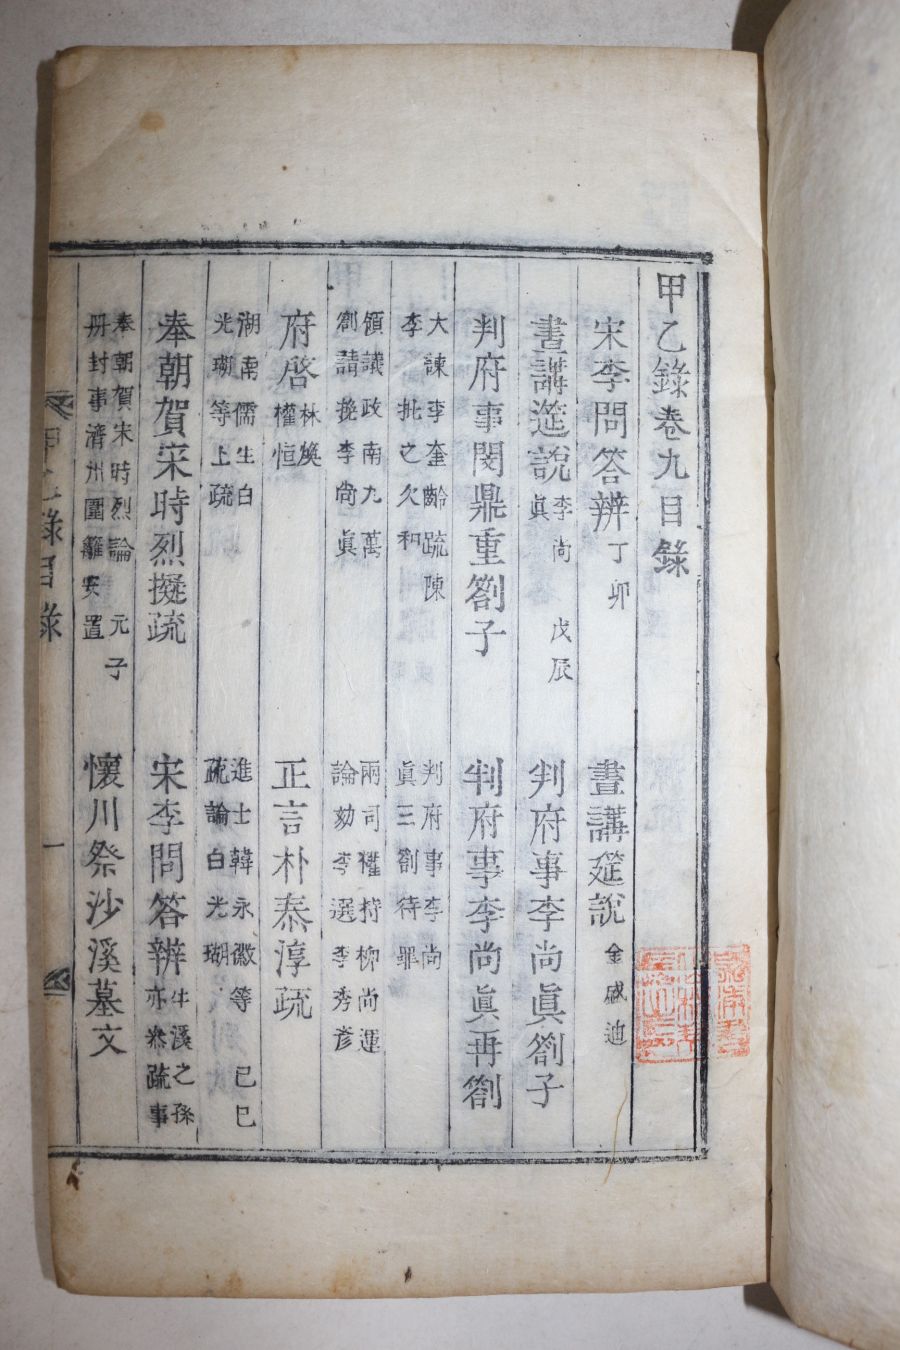 甲乙錄卷九目錄
宋李問答辨 丁卯
晝講筵說 金盛迪
晝講筵說 李尚眞 戊辰
判府事李尚眞劄子
判府事閔鼎重劄子
判府事李尚眞再劄
大諫李奎齡疏陳李批之欠和
判府事李尚眞三劄待罪
領議政南九萬劄請挽李尚眞
兩司權持柳尚運論劾李選李秀彦
府啓 林煥 權恒
正言朴泰淳疏
湖南儒生白光瑚等上疏
進士韓永徽等疏論白光瑚 己巳
奉朝賀宋時烈擬疏
宋李問答辨 牛溪之孫亦參疏事
奉朝賀宋時烈論 元子册封事濟州圍籬安置
懷川祭沙溪墓文
甲乙錄目錄
一